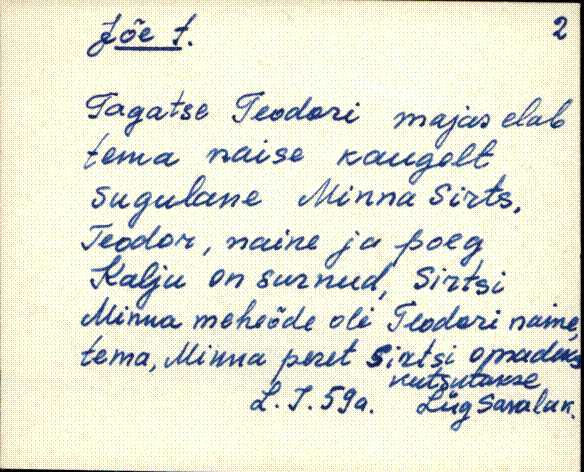 Jõe t. 2
Tagatse Teodori majas elab
tema naise kaugelt
sugulane Minna Sirts.
Teodor, naine ja poeg
Kalju on surnud, Sirtsi
Minna meheõde oli Teodori naine,
tema, Minna peret Sirtsi omadeks
kutsutakse
L. J. 59a. Lüg Savaluk.